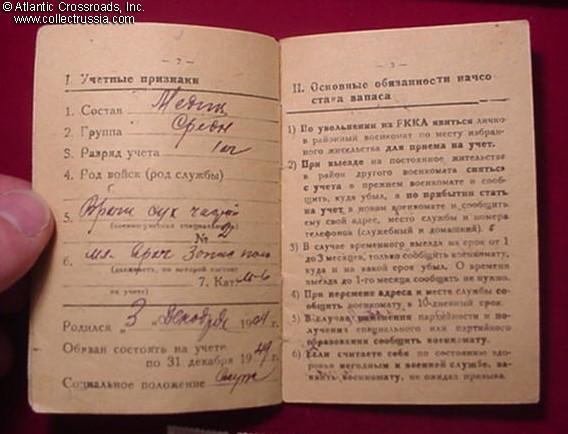 © Atlantic Crossroads, Inc.
www.collectrussia.com
— 2 —
I. Учетные признаки
1. Состав Медиц
2. Группа Средн
3. Разряд учета 1
4. Род войск (род службы)
5. Врачи сух частей
(военно-учетная специальность)
№
6. мл. Врач Запас полк
(должность, по которой состоит
на учете)
7. Кат. М-6
Родился „3 „ декабря 1904 г.
Обязан состоять на учете
по 31 декабря 1949 г.
Социальное положение служ
— 3 —
II. Основные обязанности начсо-
става запаса
1) По увольнении из РККА явиться лично
в районный военкомат по месту избран-
ного жительства для приема на учет.
2) При выезде на постоянное жительство
в район другого военкомата сняться
с учета в прежнем военкомате и сооб-
щить, куда убыл, а по прибытии стать
на учет в новом военкомате и сообщить
ему свой адрес, место службы и номера
телефона (служебный и домашний).
3) В случае временного выезда на срок от 1
до 3 месяцев, только сообщить военкомату,
куда и на какой срок убыл. О времени
выезда до 1-го месяца сообщать не нужно.
4) При перемене адреса и места службы со-
общить военкомату в 10-дневный срок.
5) В случае изменения партийности и по-
лучения специального или партийного
образования сообщить военкомату.
6) Если считаете себя по состоянию здо-
ровья негодным к военной службе, за-
явить военкомату, не ожидая призыва.